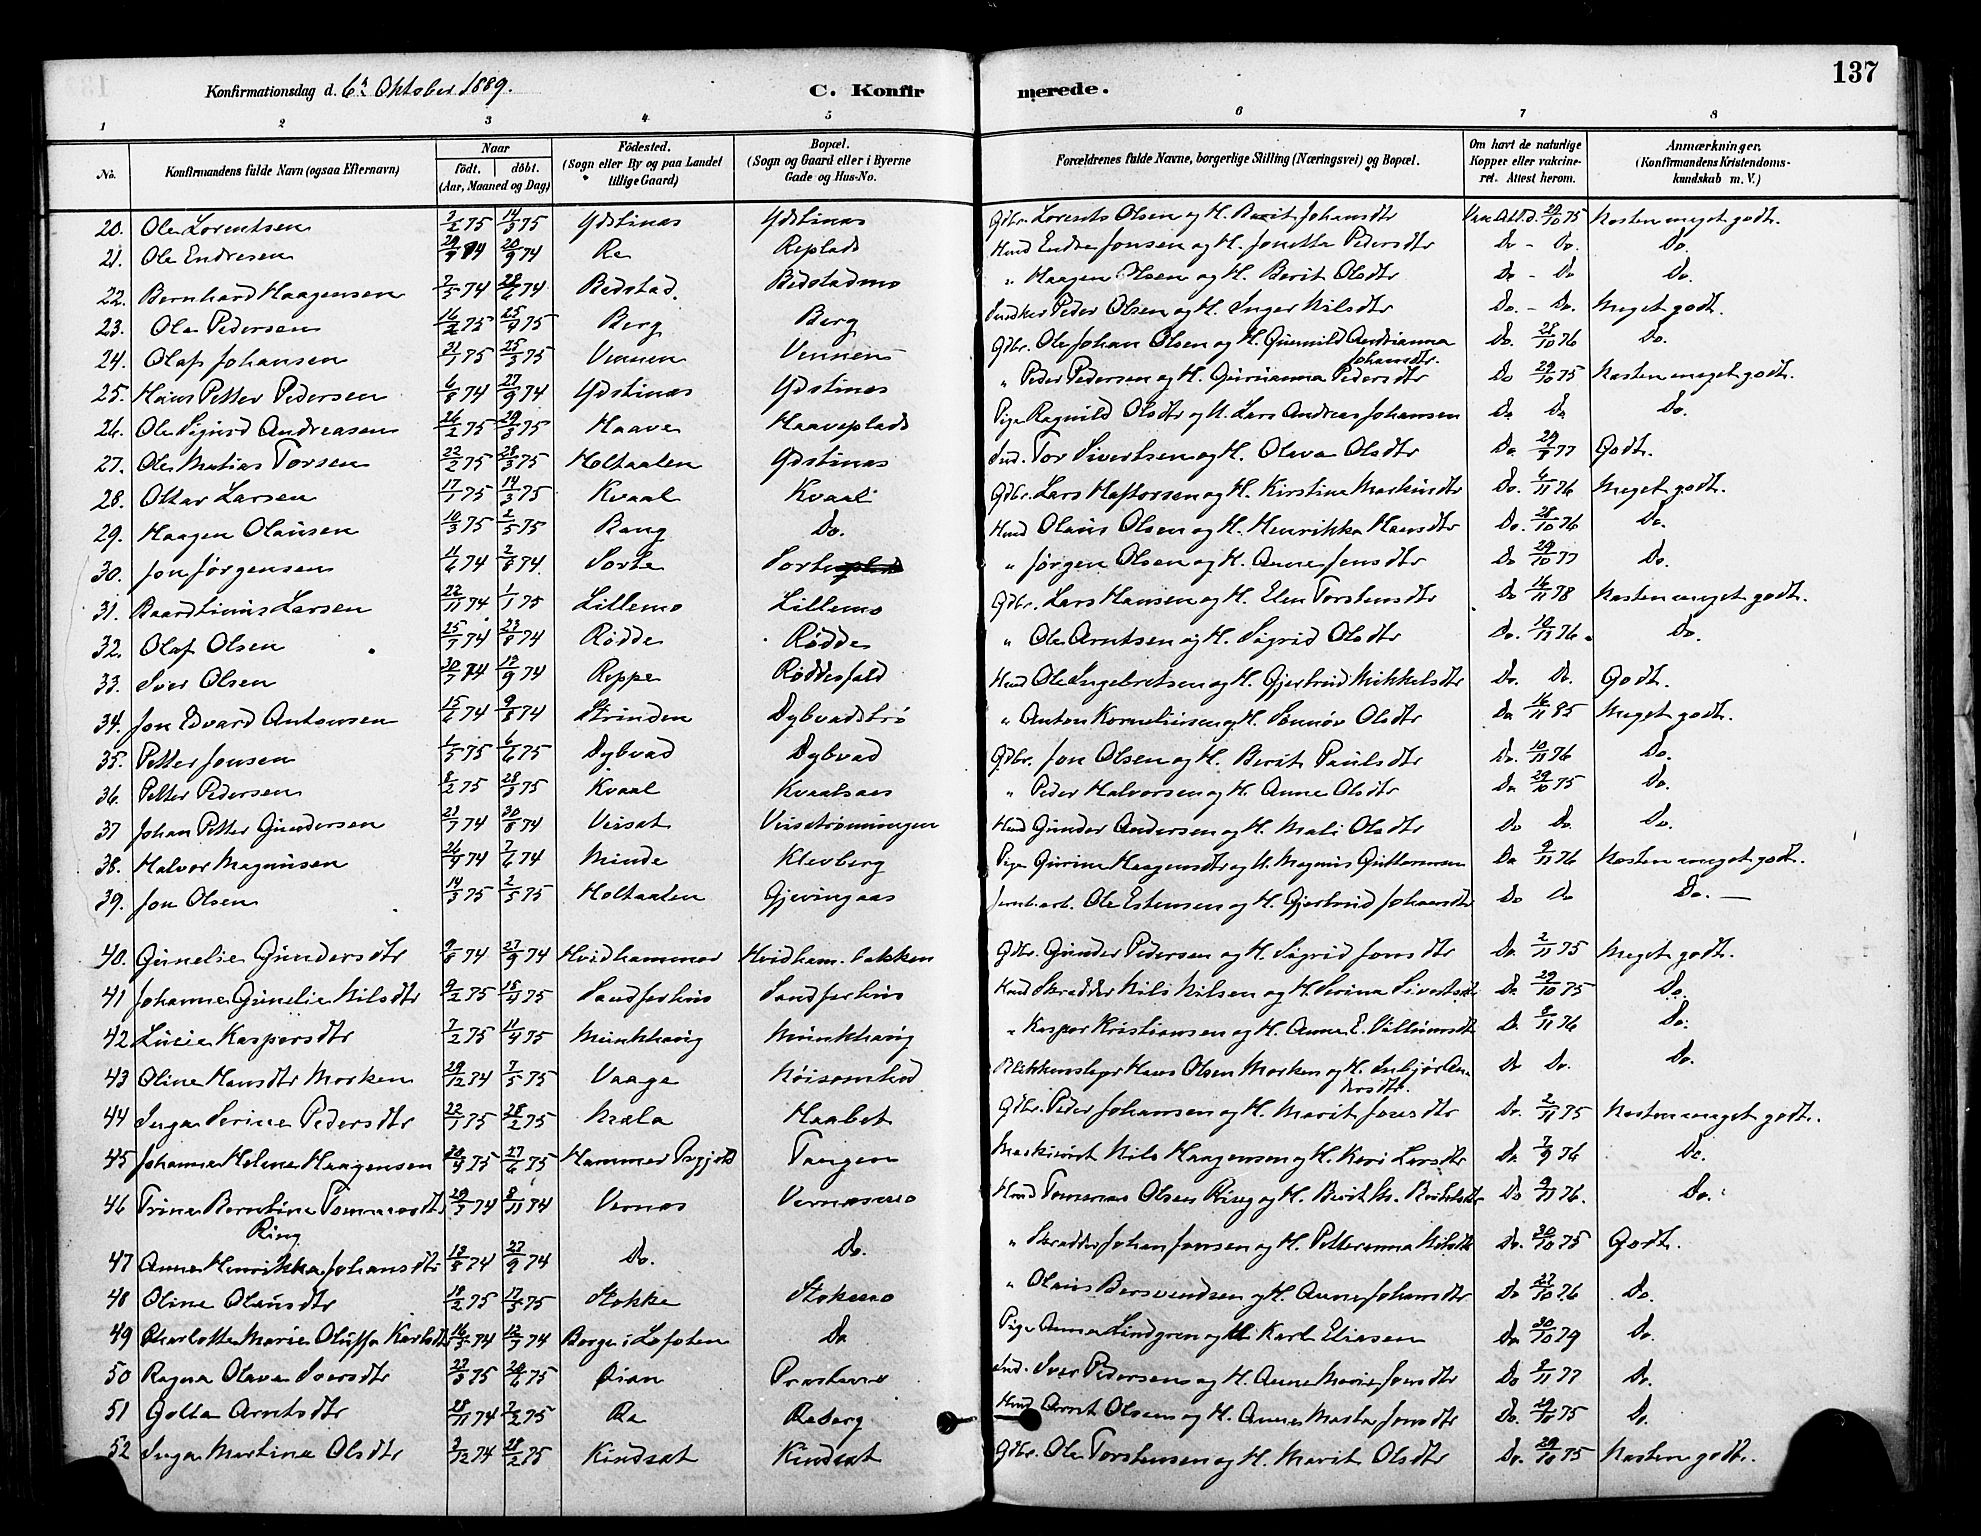 137
Konfirmationsdag d. 6te Oktober 1889. C. Konfirmerede.
1 2 3 4 5 6 7 8
No. Konfirmandens fulde Navn (ogsaa Efternavn) Naar födt. döbt. (Aar, Maaned og Dag) Födested. (Sogn eller By og paa Landet lillige Gaard) Bopæl. (Sogn og Gaard eller i Byerne Gade og Hus-No. Forældrenes fulde Navne, borgerlige Stilling (Næringsvei) og Bopæl. Om havt de naturlige Kopper eller vakcineret. Attest herom. Anmærkninger. (Konfirmandens Kristendomskundskab m. V.)
20. Ole Lorentsen 2/2 75 14/3 75 Ydstines Ydstines Gdbr. Lorents Olsen og H. Berit Johansdtr Vac. Att. d. 29/10 75 Næsten meget godt.
21. Ole Endresen 29/7 74 20/9 74 Re Replads Hmd Endre Jonsen og H. Jonetta Pedersdtr Do - Do. Do.
22. Bernhard Haagensen 2/5 74 28/6 74 Bedstad Bedstadmo " Haagen Olsen og H. Berit Olsdtr Do - Do Do.
23. Ole Pedersen 16/2 75 25/4 75 Berg Berg Peder Olsen og H. Inger Nilsdtr Do. - Do. Meget godt.
24. Olaf Johansen 31/1 75 25/3 75 Vennen Vennen Gdbr. Ole Johan Olsen og H. Gunnild Andrianna Johansdtr. Do. 28/10 76 Do.
25. Hans Petter Pedersen 6/8 74 27/9 74 Ydstines Ydstines " Peder Pedersen og H. Gurianna Pedersdtr Do 29/10 75 Næsten meget godt.
26. Ole Sigurd Andreasen 26/2 75 29/3 75 Haave Haaveplads Pige Ragnild Olsdtr og U. Lars Andreas Johansen Do Do Do.
27. Ole Matias Torsen 22/2 75 28/3 75 Holtaalen Ydstines Ind. Tor Sivertsen og H. Olava Olsdtr Do. 29/9 77 Godt.
28. Ottar Larsen 17/1 75 14/3 75 Kvaal Kvaal Gdbr. Lars Haftorsen og H. Kirstina Markusdtr Do. 6/11 76 Meget godt.
29. Haagen Olausen 10/3 75 2/5 75 Bang Do. Hmd Olaus Olsen og H. Henrikka Hansdtr Do. 28/10 76 Do.
30. Jon Jørgensen 11/6 74 2/8 74 Sorte Sorte " Jørgen Olsen og H. Anne Jensdtr Do 29/10 77 Do.
31. Larsen 22/11 74 1/1 75 Lillemo Lillemo Gdbr. Lars Hansen og H. Elen Torstensdtr Do 16/11 78 Næsten meget godt.
32. Olaf Olsen 25/7 74 23/8 74 Rødde Rødde " Ole Arntsen og H. Sigrid Olsdtr Do. 10/11 76. Do.
33. Iver Olsen 30/7 74 13/9 74 Reppe Røddesfald Hmd Ole Ingebretsen og H. Gjertrud Mikkelsdtr Do. Do. Godt.
34. Jon Edvard Antonsen 15/6 74 9/8 74 Strinden Dybvadstrø " Anton Korneliusen og H. Sennøv Olsdtr Do 16/11 85 Meget godt.
35. Petter Jonsen 1/5 75 6/6 75 Dybvad Dybvad Gdbr. Jon Olsen og H. Berit Paulsdtr Do. 10/11 76 Do.
36. Petter Pedersen 8/2 75 28/3 75 Kvaal Kvaalsaas " Peder Halvorsen og H. Anne Olsdtr Do 29/10 75 Do.
37 Johan Petter Gundersen 21/7 74 30/8 74 Veisat Hmd Gunder Andersen og H. Mali Olsdtr Do Do. Do.
38. Halvor Magnusen 26/4 74 7/6 74 Minde Klevberg Pige Gurine Haagensdtr og U. Magnus Do 9/11 76 Næsten meget godt.
39. Jon Olsen 14/3 75 2/5 75 Holtaalen Gjevingaas Jernbarb. Ole Estensen og H. Gjertrud Johansdtr Do Do Do. —
40. Gunelie Gundersdtr 9/8 74 27/9 74 Hvidhammer Hvidham. bakken Gdbr. Gunder Pedersen og H. Sigrid Jonsdtr Do. 2/11 75 Meget godt.
41 Johanna Gunelie Nilsdtr 9/2 75 18/4 75 Sandferhus Sandferhus Hmd Skrædder Nils Nilsen og H. Serina Sivertsdtr Do. 29/10 75 Do.
42 Lusie Kaspersdtr 7/2 75 11/4 75 Munkhaug Munkhaug " Kasper Kristiansen og H. Anne E. Do. 8/11 76 Do.
43 Oline Hansdtr Morken 29/12 74 7/5 75 Vaage Nøisomhed Hans Olsen Morken og H. Inbjør Andersdtr. Do Do. Do.
44 Inga Serine Pedersdtr 22/1 75 28/2 75 Næla Haabet Gdbr. Peder Johansen og H. Marit Jonsdtr Do. 2/11 75 Næsten meget godt.
45 Johanna Helene Haagensen 20/4 75 27/6 75 Hammer Tangen Nils Haagensen og H. Keri Larsdtr Do. 7/9 76 Do.
46 Trine Berntine Tommasdtr Ring 29/7 74 8/11 74 Vernes Vernesmo Hmd Tommas Olsen Ring og H. Berit M. Do 9/11 76. Do.
47 Anne Henrikka Johansdtr 13/8 74 27/9 74 Do. Do. " Skrædder Johan Jonsen og H. Petterenna Nilsdtr Do. 30/10 75 Godt.
48 Oline Olausdtr 18/2 75 17/5 75 Stokke Stokemo " Olaus Bersvendsen og H. Anne Johansdtr Do 27/10 76 Do.
49 Charlotte Marie Oluffa Karlsdtr 16/2 74 12/3 74 Borge i Lofoten Do Pige Anna Lindgren og U. Karl Eliasen Do 30/10 79 Do.
50 Ragna Olava Iversdtr 27/3 75 20/6 75 Øian Prestemo Ind. Iver Pedersen og H. Anne Marie Jonsdtr Do 9/11 77 Do.
51 Golla Arntsdtr 28/11 74 2/2 75 Re Reberg Hmd Arnt Olsen og H. Anne Marta Jonsdtr Do. 29/10 75 Do.
52 Inga Martine Olsdtr 3/12 74 28/2 75 Kindsat Kindsat Gdbr. Ole Torstensen og H. Marit Olsdtr Do. 29/10 75 Næsten godt.